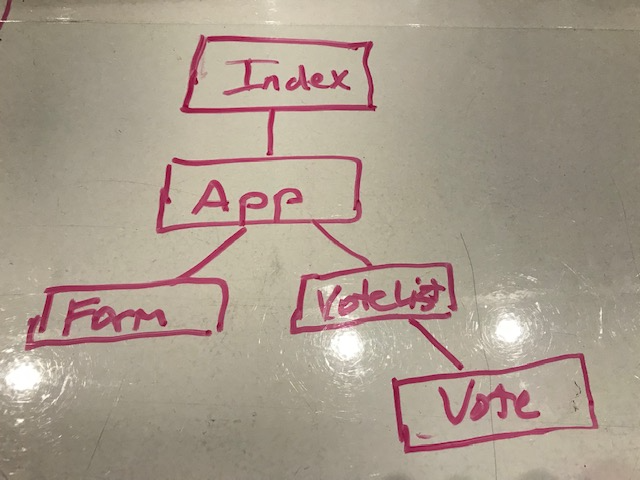 Index
App
Form
VoteList
Vote